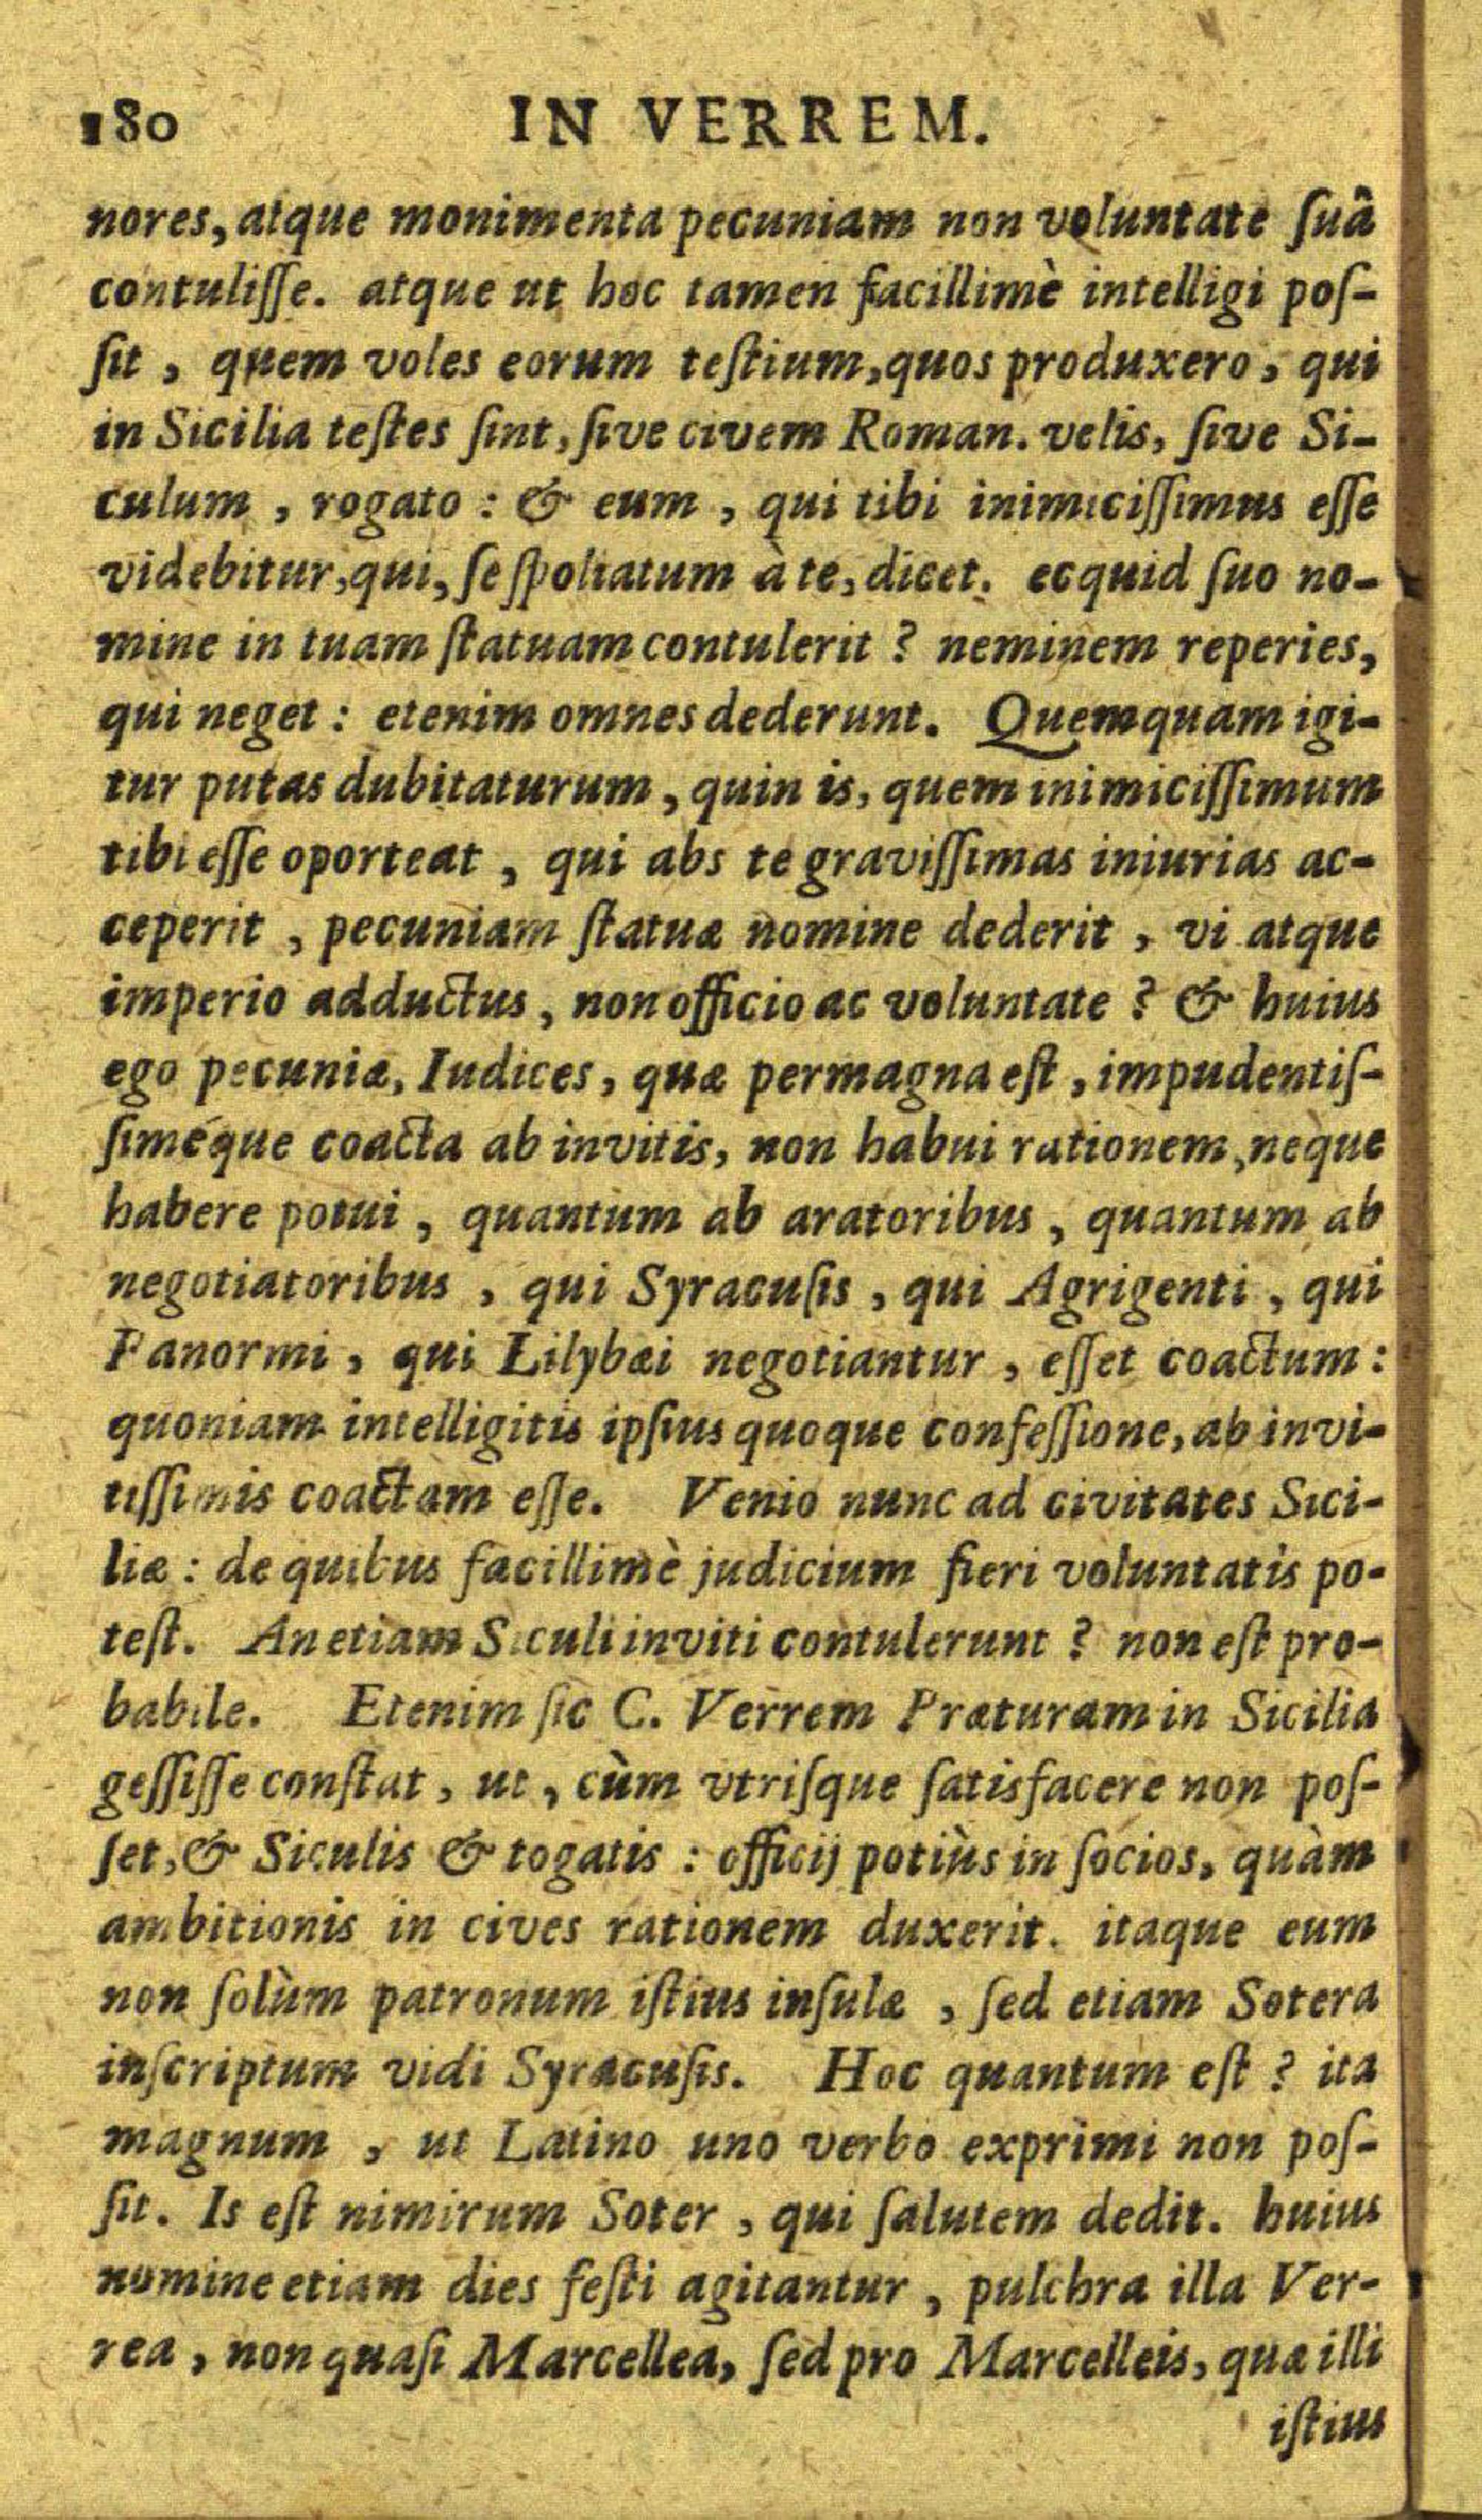 180 IN VERREM.
nores, atque monimenta pecuniam non voluntate ſuâ
contuliſſe. atque ut hoc tamen facillimè intelligi poſ-
ſit , quem voles eorum teſtium, quos produxero, qui
in Sicilia teſtes ſint, ſive civem Roman. velis, ſive Si-
culum , rogato : & eum , qui tibi inimiciſſimus eſſe
videbitur, qui, ſe ſpoliatum à te, dicet. ecquid ſuo no-
mine in tuam ſtatuam contulerit ? neminem reperies,
qui neget : etenim omnes dederunt. Quemquam igi-
tur putas dubitaturum , quin is, quem inimiciſſimum
tibi eſſe oporteat , qui abs te graviſſimas iniurias ac-
ceperit , pecuniam ſtatuæ nomine dederit , vi atque
imperio adductus, non officio ac voluntate ? & huius
ego pecuniæ, Iudices, quæ permagna eſt , impudentiſ-
ſiméque coacta ab invitis, non habui rationem, neque
habere potui , quantum ab aratoribus , quantum ab
negotiatoribus , qui Syracuſis , qui Agrigenti , qui
Panormi , qui Lilybæi negotiantur , eſſet coactum :
quoniam intelligitis ipſius quoque confeſſione, ab invi-
tiſſimis coactam eſſe. Venio nunc ad civitates Sici-
liæ : de quibus facillimè judicium fieri voluntatis po-
teſt. An etiam Siculi inviti contulerunt ? non eſt pro-
babile. Etenim ſic C. Verrem Præturam in Sicilia
geſſiſſe conſtat , ut , cùm vtriſque ſatisfacere non poſ-
ſet, & Siculis & togatis : officij potiùs in ſocios, quàm
ambitionis in cives rationem duxerit. itaque eum
non ſolùm patronum iſtius inſulæ , ſed etiam Sotera
inſcriptum vidi Syracuſis. Hoc quantum eſt ? ita
magnum , ut Latino uno verbo exprimi non poſ-
ſit. Is eſt nimirum Soter , qui ſalutem dedit. huius
nomine etiam dies feſti agitantur , pulchra illa Ver-
rea , non quaſi Marcellea, ſed pro Marcelleis, quæ illi
iſtius